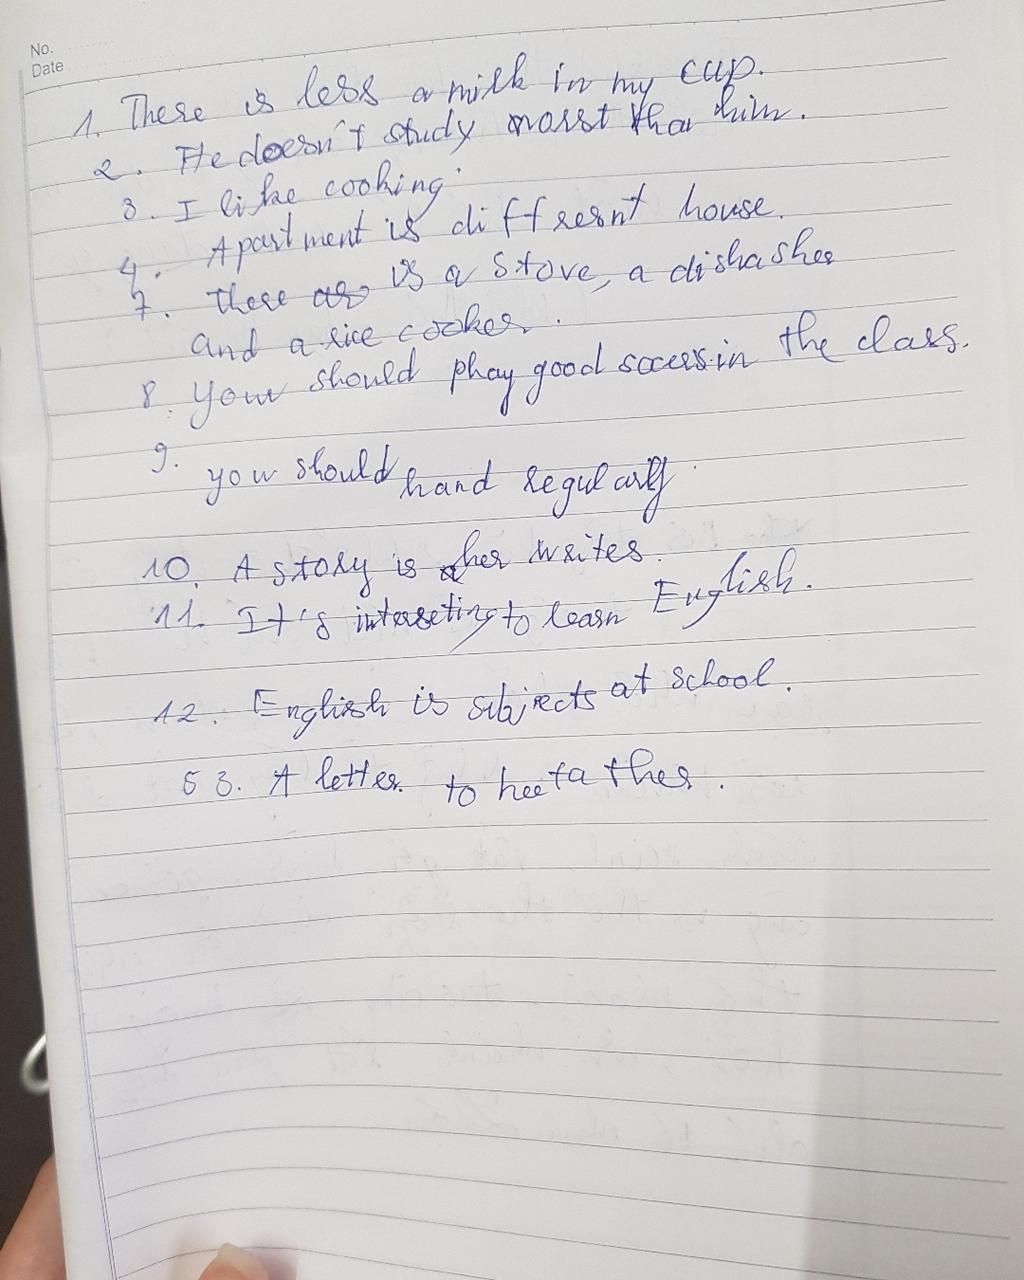 No.
Date
1. There is less a milk in my cup.
2. He doesn't study morst tha him.
3. I like cooking.
4. Apartment is diffresnt house.
7. there is a stove, a dishasher
and a rice cooker.
8. you should phay good soccers in the class.
9. you should hand regularly.
10. A story is her writes.
11. It's interseting to learn English.
12. English is subjects at school.
53. A letter to her father.